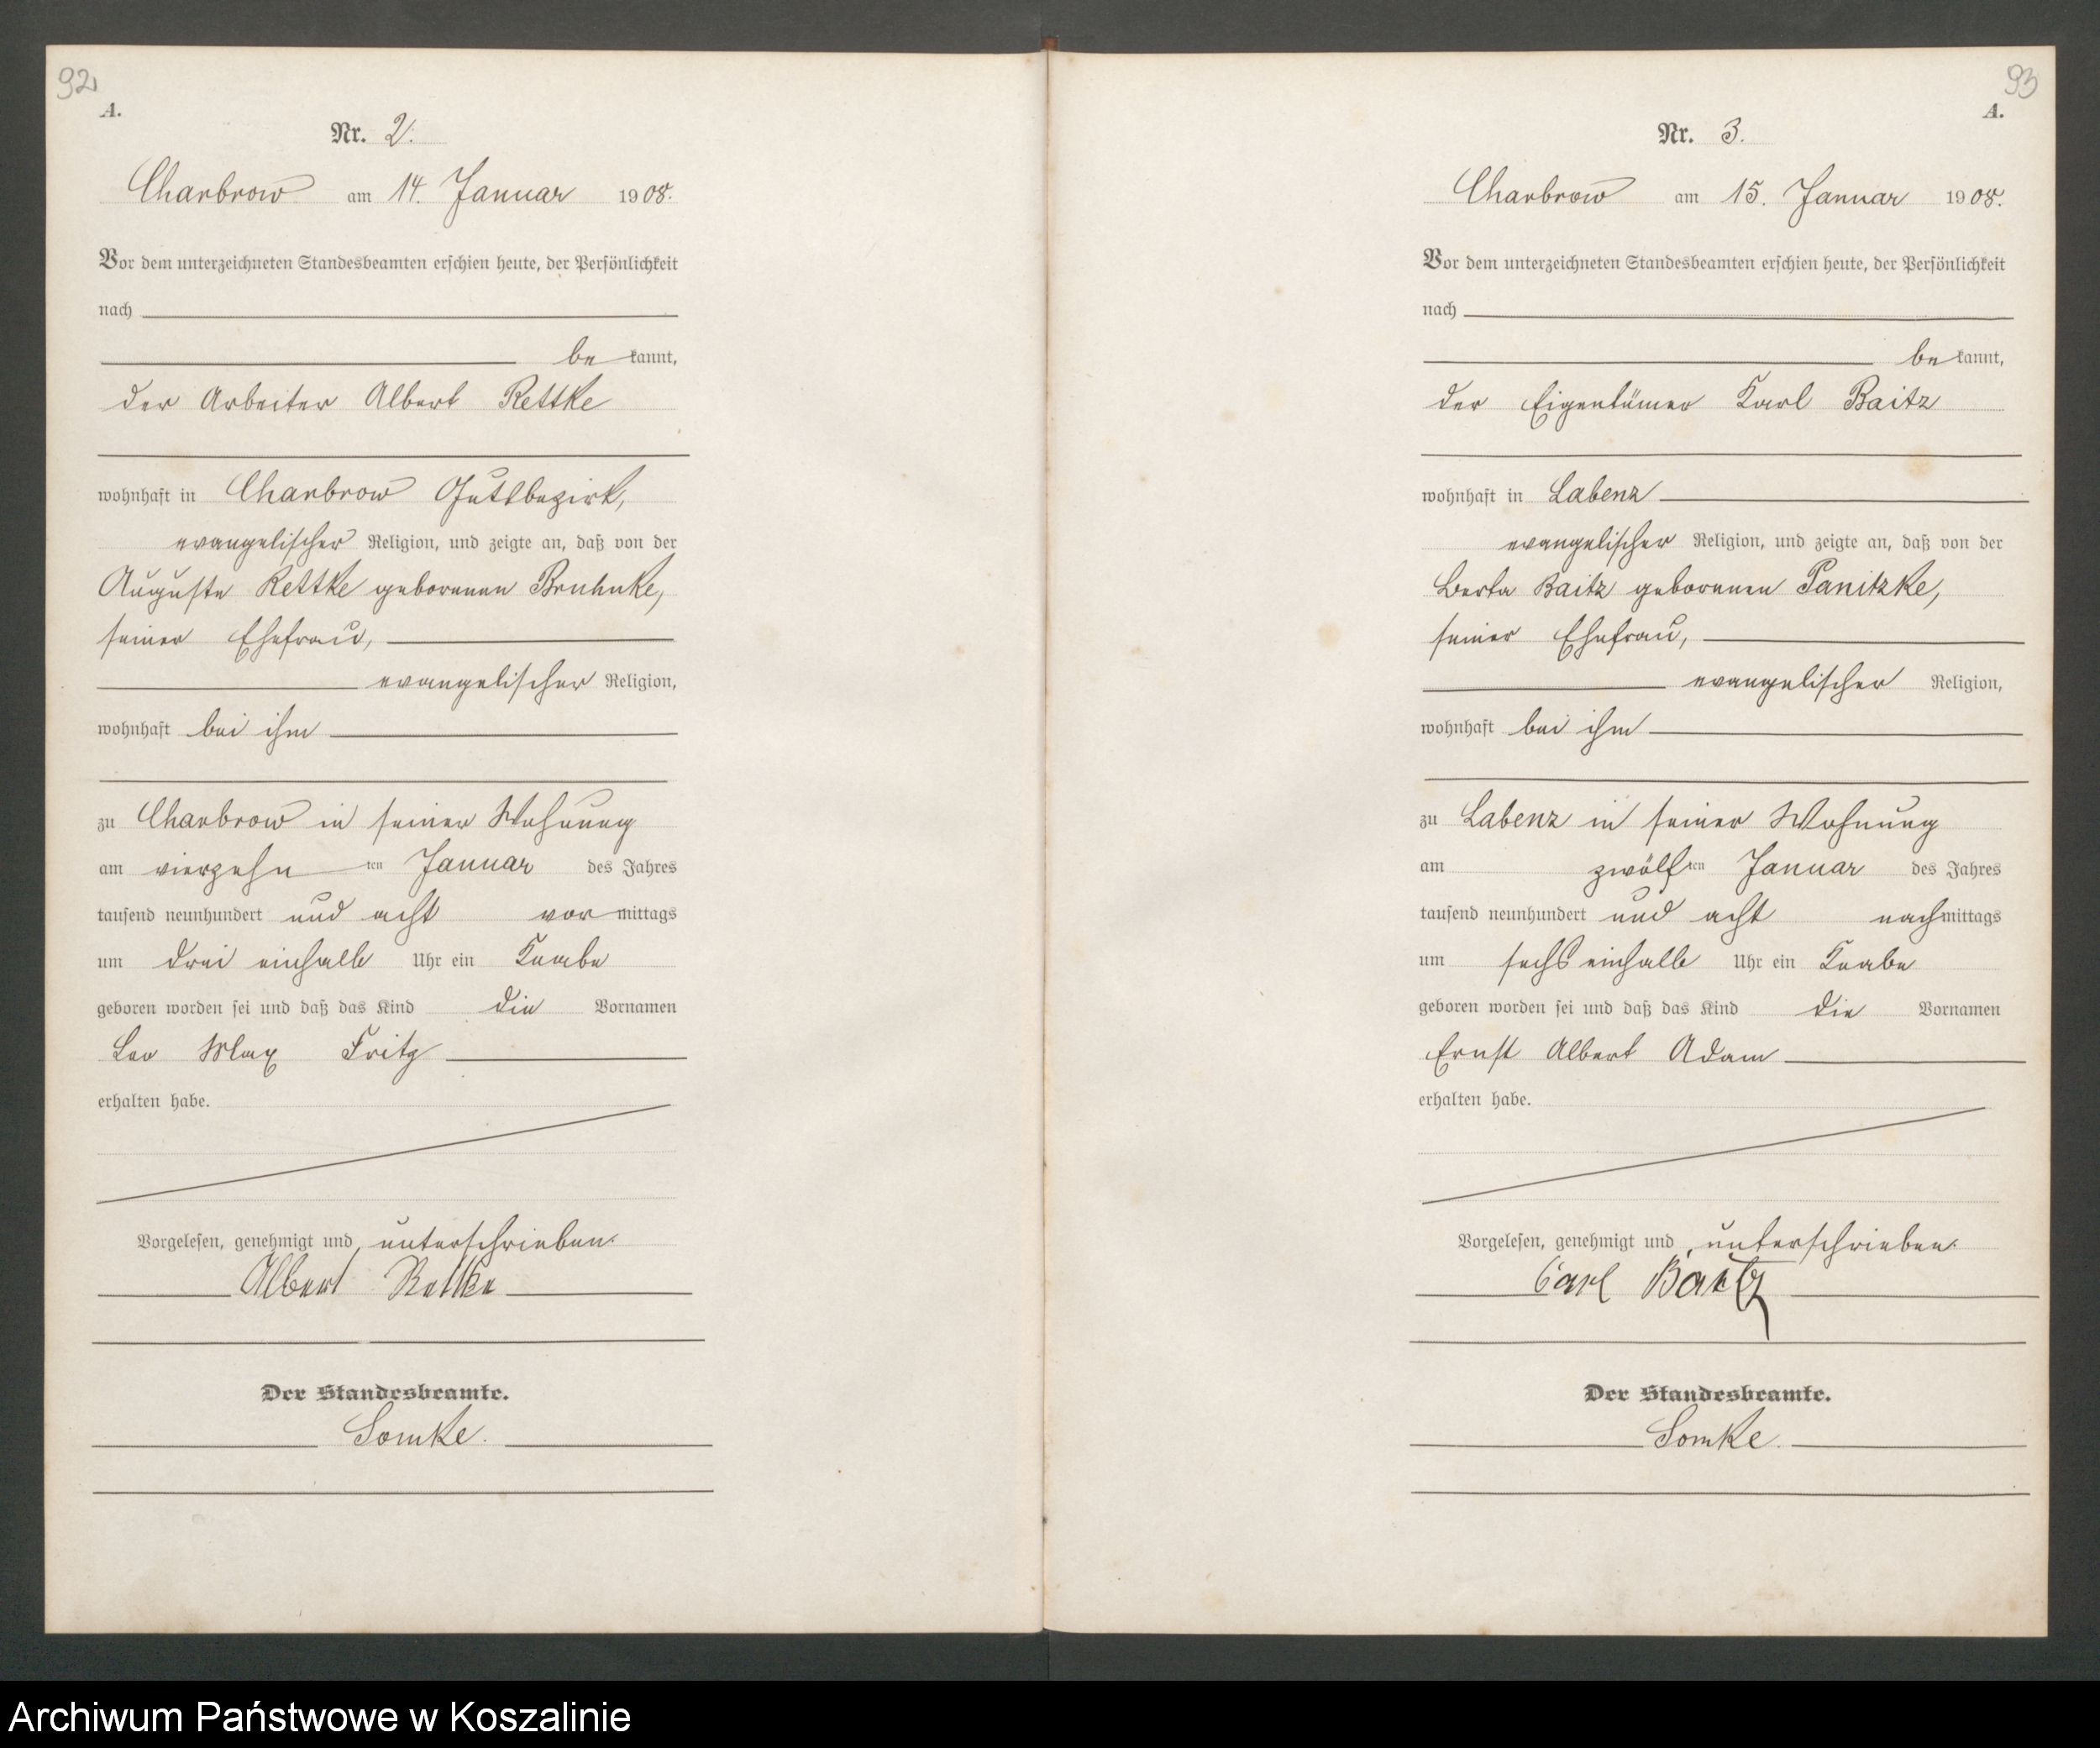 92
A.
Nr. 2.
Charbrow am 14. Januar 1908.
Vor dem unterzeichneten Standesbeamten erschien heute, der Persönlichkeit
nach
be kannt,
der Arbeiter Albert Rettke
wohnhaft in Charbrow Gutsbezirk,
evangelischer Religion, und zeigte an, daß von der
Auguste Rettke geborenen Bruhnke,
seiner Ehefrau,
evangelischer Religion,
wohnhaft bei ihm
zu Charbrow in seiner Wohnung
am vierzehn ten Januar des Jahres
tausend neunhundert und acht vor mittags
um drei einhalb Uhr ein Knabe
geboren worden sei und daß das Kind die Vornamen
Leo Max Fritz
erhalten habe.
Vorgelesen, genehmigt und unterschrieben.
Albert Rettke
Der Standesbeamte.
Somke.
93
A.
Nr. 3.
Charbrow am 15. Januar 1908.
Vor dem unterzeichneten Standesbeamten erschien heute, der Persönlichkeit
nach
be kannt,
der Eigentümer Karl Baitz
wohnhaft in Labenz
evangelischer Religion, und zeigte an, daß von der
Berta Baitz geborenen Panitzke,
seiner Ehefrau,
evangelischer Religion,
wohnhaft bei ihm
zu Labenz in seiner Wohnung
am zwölf ten Januar des Jahres
tausend neunhundert und acht nachmittags
um sechs einhalb Uhr ein Knabe
geboren worden sei und daß das Kind die Vornamen
Ernst Albert Adam
erhalten habe.
Vorgelesen, genehmigt und unterschrieben.
Carl Baitz
Der Standesbeamte.
Somke.
Archiwum Państwowe w Koszalinie